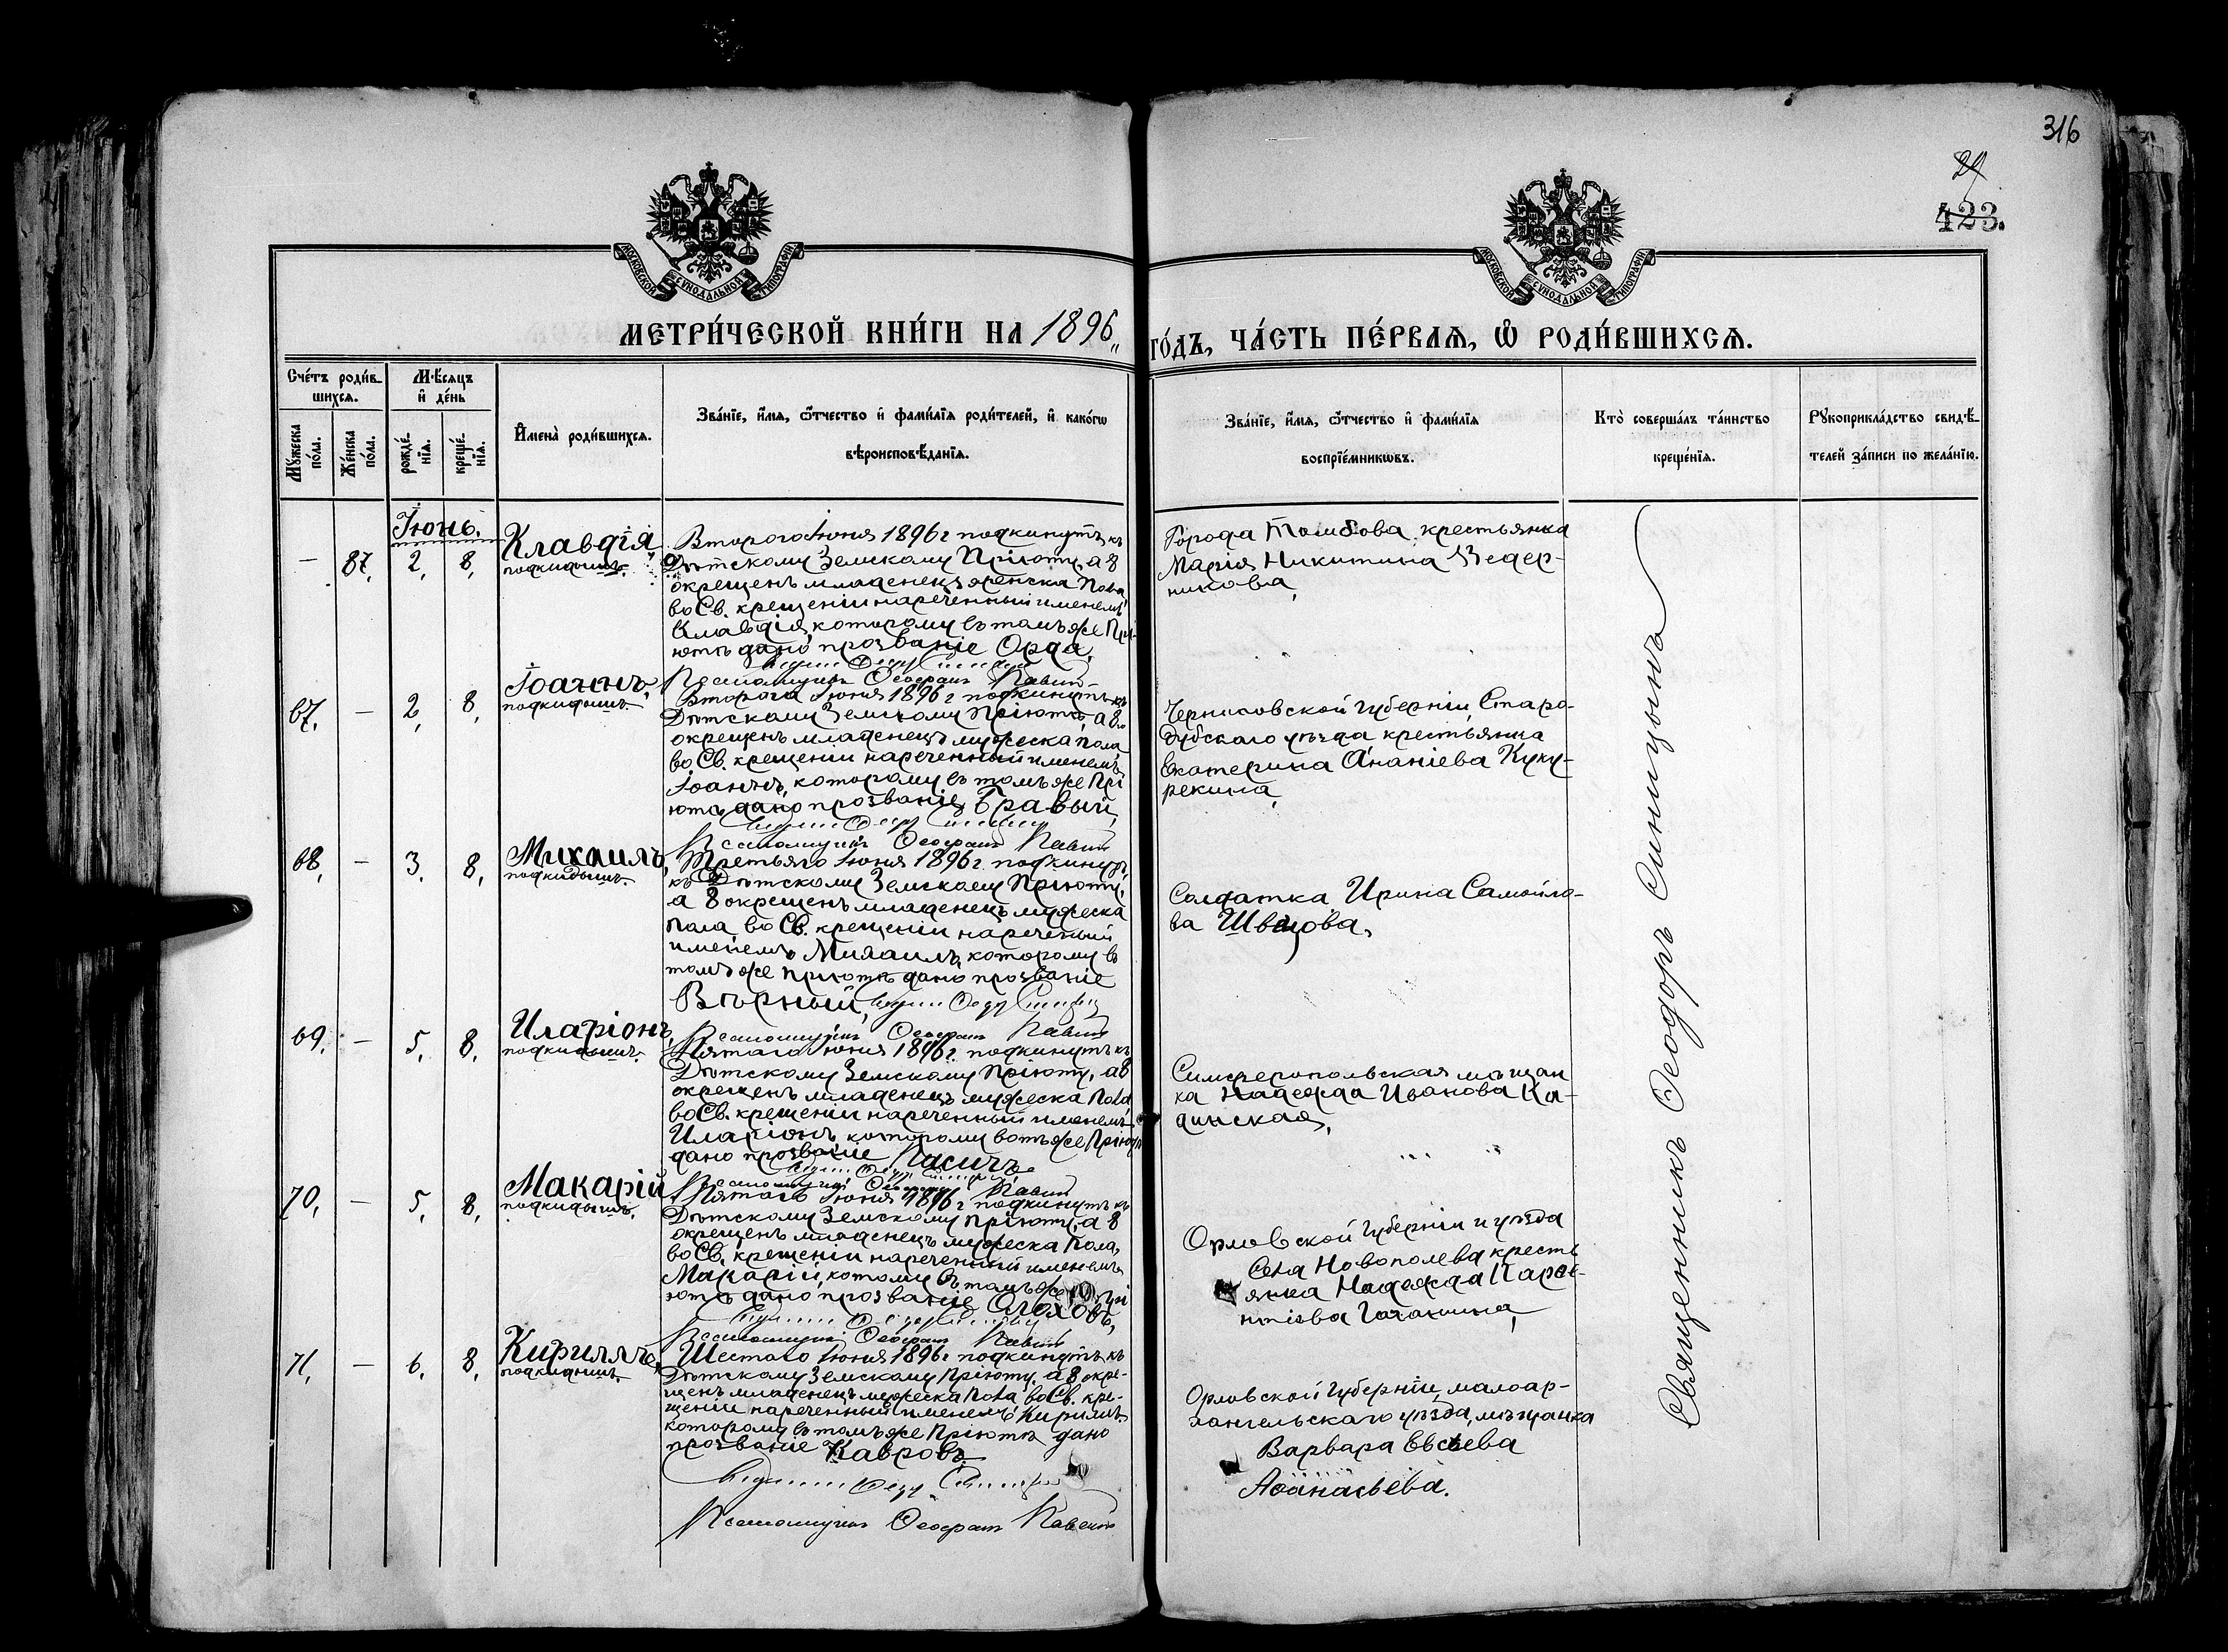 316
29
423.
МОСКОВСКОЙ СѴНОДАЛЬНОЙ ТИПОГРАФІИ
МОСКОВСКОЙ СѴНОДАЛЬНОЙ ТИПОГРАФІИ
МЕТРИ́ЧЕСКОЙ КНИ́ГИ НА 1896
ГО́ДЪ, ЧА́СТЬ ПЕ́РВАѦ, Ѽ РОДИ́ВШИХСѦ.
Сче́тъ роди́в-
шихсѧ.
Мꙋжеска
по́ла.
Же́нска
по́ла.
М҆ѣсѧцъ
и҆ де́нь
рожде́-
нїѧ.
креще́-
нїѧ.
И҆мена̀ роди́вшихсѧ.
Зва́нїе, и҆́мѧ, ѻ҆́тчество и҆ фами́лїѧ роди́телей, и҆ како́гѡ
вѣроисповѣ́данїѧ.
Зва́нїе, и҆́мѧ, ѻ҆́тчество и҆ фами́лїѧ
воспрїе́мникѡвъ.
Кто̀ соверша́лъ та́инство
креще́нїѧ.
Рꙋкоприкла́дство свидѣ́-
телей за́писи по жела́нїю.
Іюнь.
— 87. 2. 8.
Клавдія
подкидышъ.
Второго Іюня 1896 г подкинутъ къ
Дѣтскому Земскому Пріюту, а 8
окрещенъ младенецъ женска пола
во Св. крещеніи нареченный именемъ
Клавдія, которому въ томъ же Прі-
ютѣ дано прозваніе Орда.
Псаломщикъ
Города Тамбова крестьянка
Марія Никитина Ведер-
никова,
67. — 2, 8,
Іоаннъ,
подкидышъ.
Второго Іюня 1896 г подкинутъ къ
Дѣтскому Земскому Пріюту, а 8го
окрещенъ младенецъ мужеска пола
во Св. крещеніи нареченный именемъ
Іоаннъ, которому въ томъ же Прі
ютѣ дано прозваніе Бравый,
Псаломщикъ
Черниговской Губерніи Старо-
дубскаго уѣзда крестьянка
Екатерина Ананіева Куку-
рекина,
68, — 3. 8,
Михаилъ,
подкидышъ.
Третьяго Іюня 1896 г. подкинутъ
къ Дѣтскому Земскому Пріюту,
а 8 окрещенъ младенецъ мужеска
пола, во Св. крещеніи нареченый
именемъ Михаилъ, которому въ
томъ же пріютѣ дано прозваніе
Вѣрный,
Псаломщикъ
Солдатка Ирина Самойло-
ва Швецова,
69. — 5. 8.
Иларіонъ,
подкидышъ.
Пятаго Іюня 1896 г. подкинутъ къ
Дѣтскому Земскому Пріюту, а 8
окрещенъ младенецъ мужеска пола
во Св. крещеніи нареченный именемъ
Иларіонъ которому вотъ же Прiютѣ
дано прозваніе Пасичъ
Псаломщикъ
Симферопольская мѣщан
ка Надежда Иванова Ка-
динская,
70. — 5, 8,
Макарій
подкидышъ.
Пятаго Іюня 1896 г подкинутъ къ
Дѣтскому Земскому Пріюту, а 8
окрещенъ младенецъ мужеска пола,
во Св. крещеніи нареченный именемъ
Макарій, котому въ томъ же Прі
ютѣ дано прозваніе
Псаломщикъ
Орловской Губерніи и уѣзда
Села Новополева кресть
янка Надежда
71, — 6. 8,
Кириллъ,
подкидышъ.
Шестаго Іюня 1896 г подкинутъ къ
Дѣтскому Земскому Пріюту, а 8 окре-
щенъ младенецъ мужеска пола во Св. кре-
щеніи нареченный именемъ Кириллъ
которому въ томъ же Пріютѣ дано
прозваніе Кавровъ
Псаломщикъ
Орловской Губерніи, малоар-
хангельскаго уѣзда, мѣщанка
Варвара Евсѣева
Аѳанасьева.
Священникъ Ѳеодоръ Синицынъ